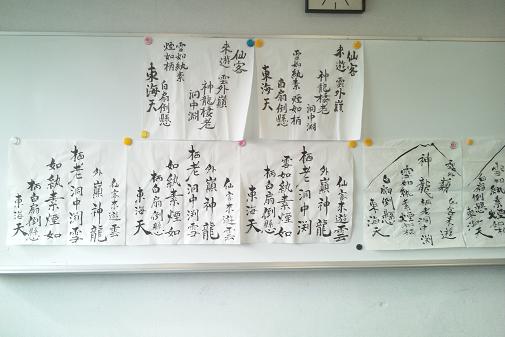 仙客
来遊 雲外巓
神龍棲老
洞中淵
雪如紈素 煙如柄
白扇倒懸
東海天
仙客
来遊 雲外巓
神龍棲老
洞中淵
雪如紈素
煙如柄
白扇倒懸
東海天
白扇倒懸
東海天
仙客来遊
神龍栖老洞中渕
雪如紈素煙如柄
白扇倒懸
東海天
仙客来遊雲
外巓神龍
栖老洞中渕
雪如紈素煙如
柄白扇倒懸
東海天
仙客来遊雲
外巓神龍
栖老洞中渕雪
如紈素煙如
柄白扇倒懸
東海天
仙客来遊雲
外巓神龍
栖老洞中渕雪
如紈素煙如
柄白扇倒懸
東海天